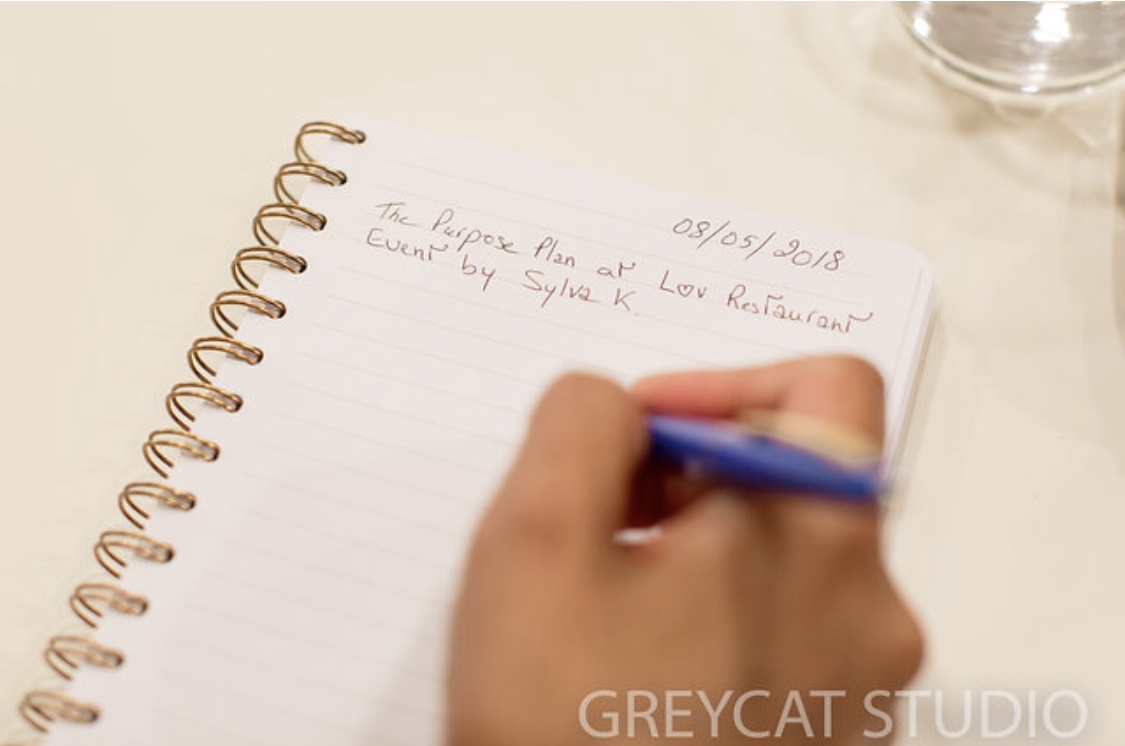 08/05/2018
The Purpose Plan at Lov Restaurant
Event by Sylva K.
GREYCAT STUDIO